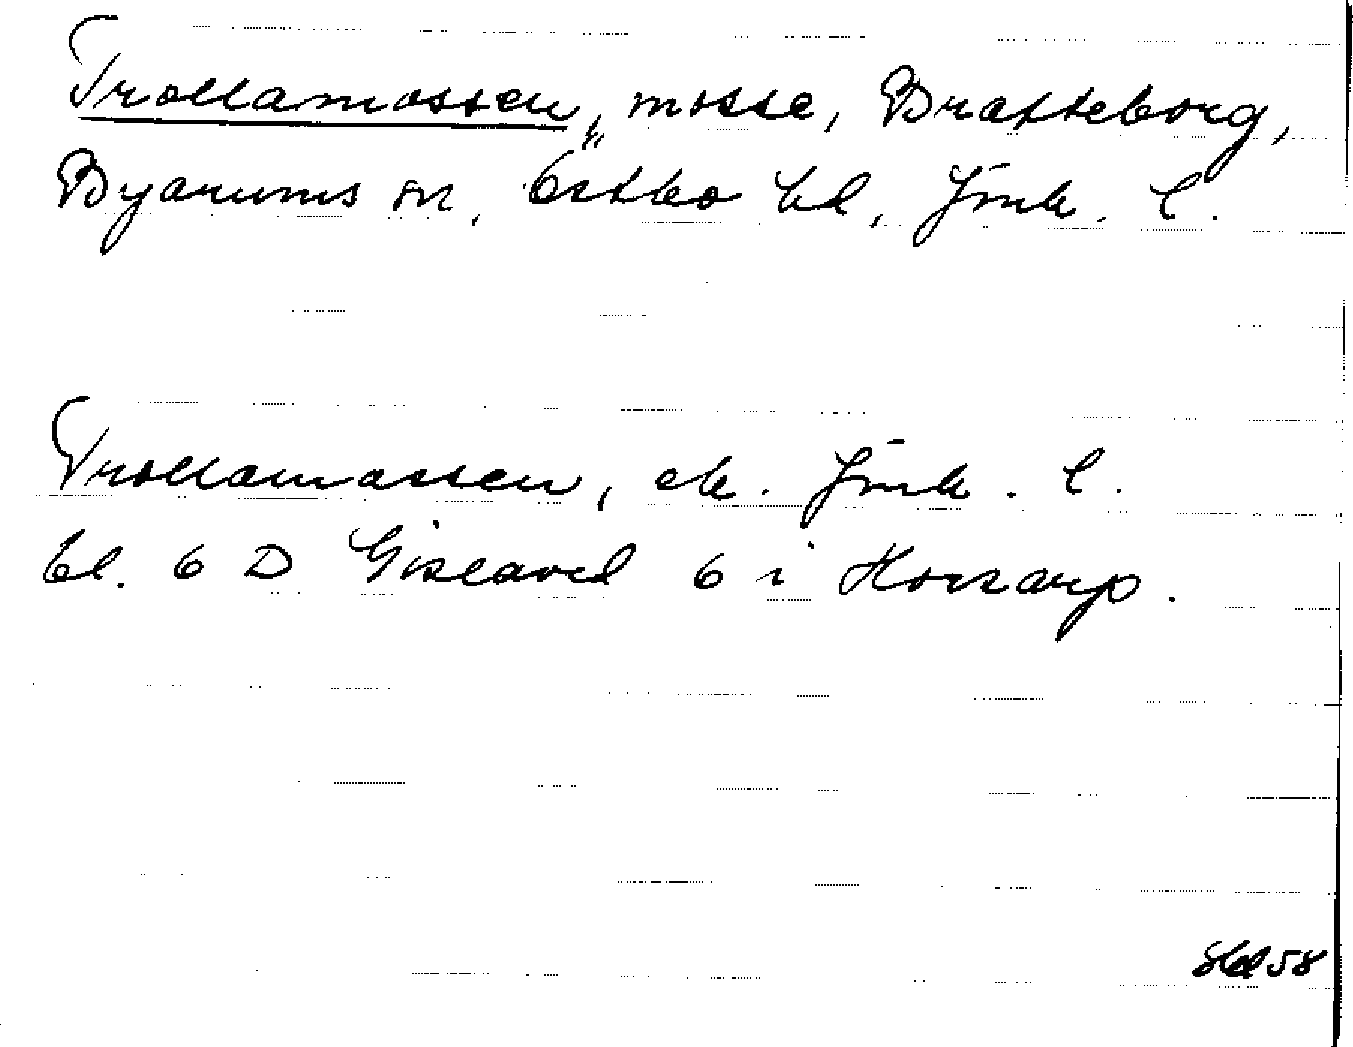 Trollamossen, mosse, Bratteborg,
Byarums sn, Östbo hd, Jönk. l.
Trollamossen, ek. Jönk. l.
bl. 6 D Gislaved 6 i Horsarp.
58